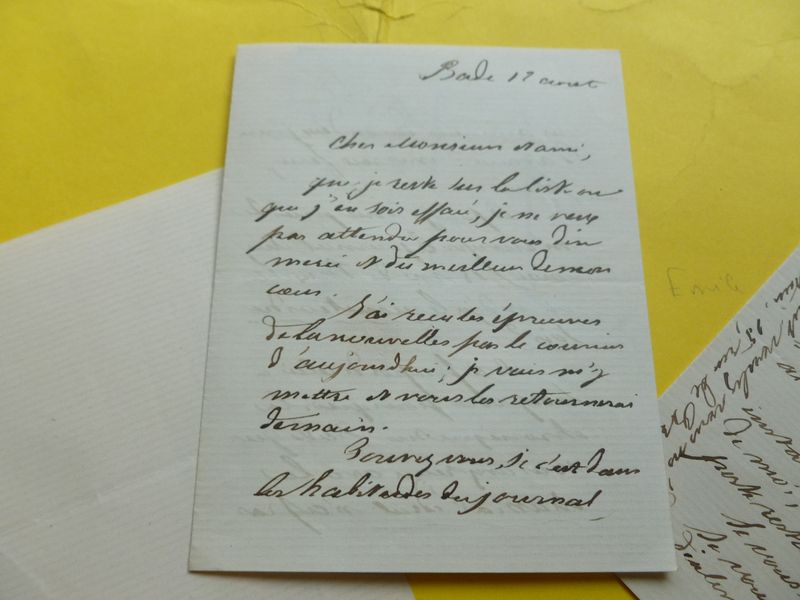 Bade 12 aout
Cher Monsieur et ami,
que je reste sur la liste ou
que j'en sois effacé, je ne veux
pas attendre pour vous dire
merci et du meilleur de mon
cœur.
J'ai reçu les épreuves
de la nouvelles par le courrier
d'aujourdhui; je vais m'y
mettre et vous les retournerai
demain.
Pouvez vous, si c'est dans
les habitudes du journal,
Emile